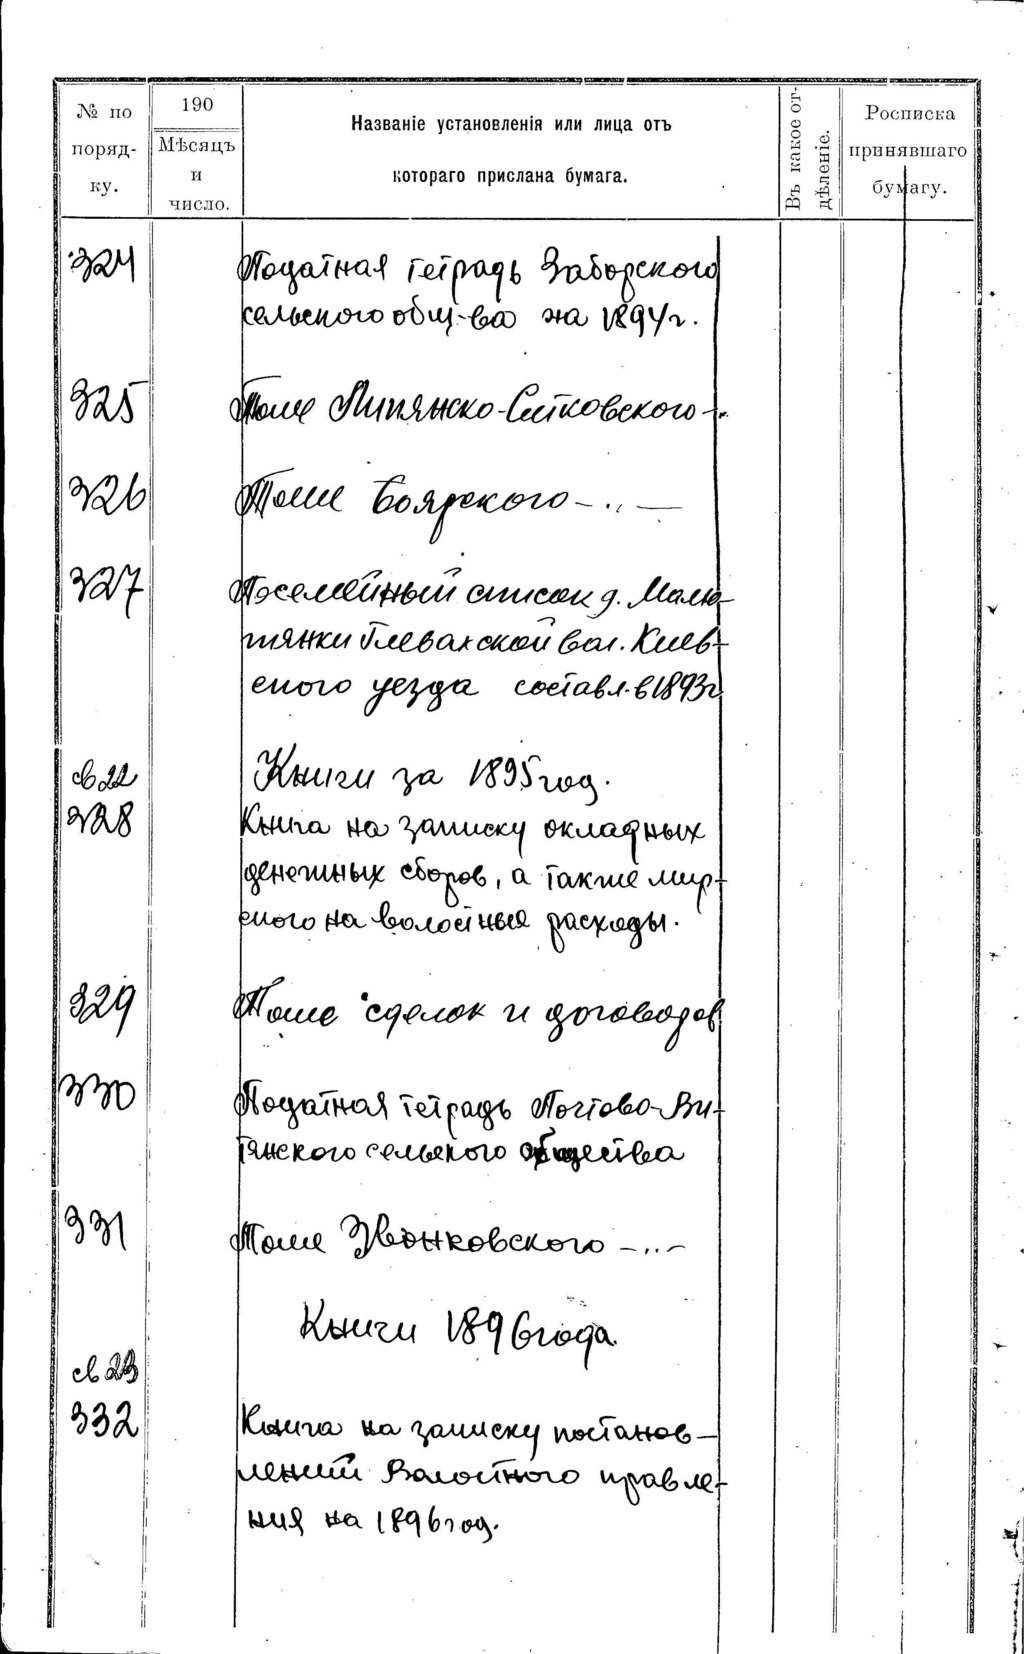 № по поряд- ку.
190
Мѣсяцъ и число.
Названіе установленія или лица отъ
котораго прислана бумага.
Въ какое от-
дѣленіе.
Росписка
принявшаго
бумагу.
324 Податная тетрадь Заборского
сельского общ-ва на 1894 г.
325 Тоже Липянско-Ситковского -„
326 Тоже Боярского -„-
327 Посемейный список д. Малю-
тянки Глевахской вол. Киев-
ского уезда составл. в 1893 г
св 22 Книги за 1895 год.
328 Книга на записку окладных
денежных сборов, а также мир-
ского на волостные расходы.
329 Тоже сделок и договоров
330 Податная тетрадь Почтово-Ви-
тянского сельского общества
331 Тоже Звонковского -„-
Книги 1896 года.
св 23
332 Книга на записку постанов-
лений Волостного правле-
ния на 1896 год.